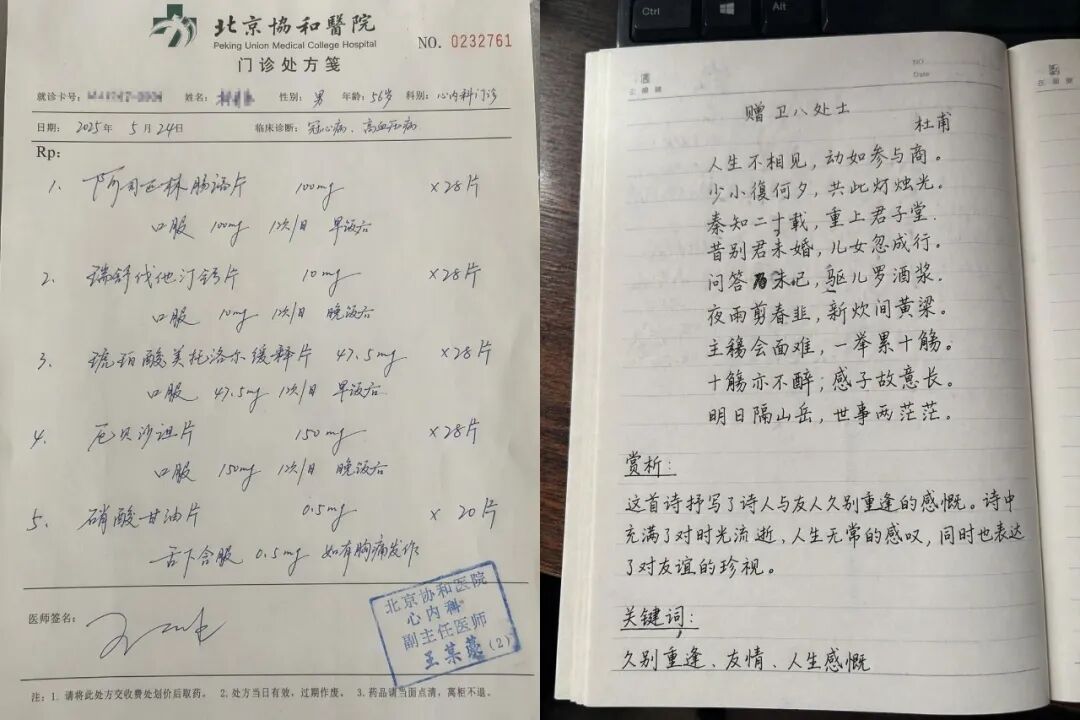 北京協和醫院
Peking Union Medical College Hospital
NO. 0232761
门诊处方笺
就诊卡号: 姓名: 性别: 男 年龄: 56岁 科别: 心内科门诊
日期: 2025年5月24日 临床诊断: 冠心病、高血压病
Rp:
1. 阿司匹林肠溶片 100mg ×28片
口服 100mg 1次/日 早饭后
2. 瑞舒伐他汀钙片 10mg ×28片
口服 10mg 1次/日 晚饭后
3. 琥珀酸美托洛尔缓释片 47.5mg ×28片
口服 47.5mg 1次/日 早饭后
4. 厄贝沙坦片 150mg ×28片
口服 150mg 1次/日 晚饭后
5. 硝酸甘油片 0.5mg ×20片
舌下含服 0.5mg 如有胸痛发作
医师签名:
北京协和医院
心内科
副主任医师
王某 (2)
注: 1. 请将此处方交收费处划价后取药。 2. 处方当日有效, 过期作废。 3. 药品请当面点清, 离柜不退。
Ctrl Alt
NO
Date
赠卫八处士
杜甫
人生不相见，动如参与商。
少小復何夕，共此灯烛光。
秦知二十载，重上君子堂.
昔别君未婚，儿女忽成行。
问答乃未已，驱儿罗酒浆.
夜雨剪春韭，新炊间黄梁。
主稱会面难，一举累十觞。
十觞亦不醉；感子故意长。
明日隔山岳，世事两茫茫。
赏析:
这首诗抒写了诗人与友人久别重逢的感慨。诗中
充满了对时光流逝、人生无常的感叹，同时也表达
了对友谊的珍视。
关键词:
久别重逢、友情、人生感慨